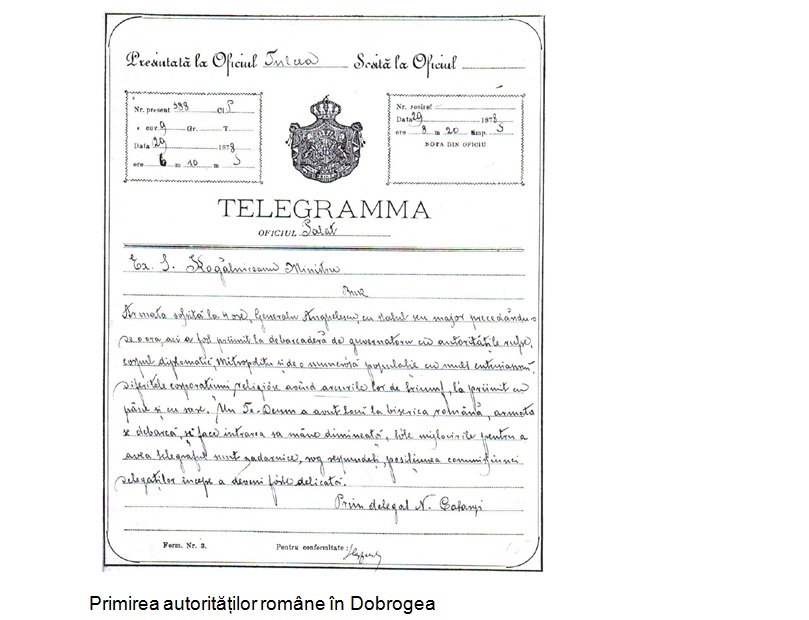 Presintată la Oficiul Tulcea Sosită la Oficiul
Nr. present 598 Cl. S
cuv. 9 Gr. T.
Data 29 1878
ore 6 m 10 m S
Nr. sosire:
Data 29 1878
ore 8 m 20 timp. S
NOTA DIN OFICIU
TELEGRAMMA
OFICIUL Palat
Ex. S. Kogălniceanu Ministru
Buc
Armata sosită la 4 ore, Generalu Anghelescu, cu statul seu major precedându-
se o ora, aci a fost priimit la debarcaderă de guvernatoru cu autoritățile ruse,
corpul diplomatic, Mitropolitu și de o numerósă populatie cu mult entusiasmŭ.
Diferitele corporatiuni religióse avènd arcurile lor de triumf, l'a priimit cu
pâne și cu sare. Un Te-Deum a avut locu la biserica română, armata
se debarcă, și face intrarea sa mâne dimineață, tóte mijlocirile pentru a
avea telegraful sunt zadarnice, rog respundeți, posițiunea comunițiunei
delegaților incepe a deveni fórte delicată.
Prim delegat N. Catargi
Form. Nr. 3. Pentru conformitate:
Primirea autorităților române în Dobrogea